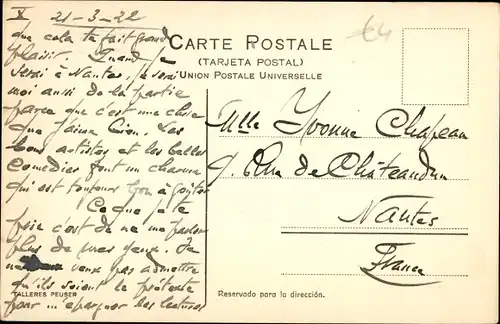 V 21-3-22
que cela te fait grand
plaisir. Quand je
serai à Nantes, je serai
moi aussi de la partie
parce que c'est une chose
que j'aime bien. Les
bons artistes et les belles
Comédies font un charme
qui est toujours bon à goûter
Ce que je te
prie c'est de ne me parler
plus de mes yeux. Je
ne veux pas admettre
qu'ils soient le prétexte
pour ... m'épargner les lectures
TALLERES PEUSER
CARTE POSTALE
(TARJETA POSTAL)
UNION POSTALE UNIVERSELLE
Mlle Yvonne Chapeau
9. Rue de Châteaudun
Nantes
France
Reservado para la dirección.